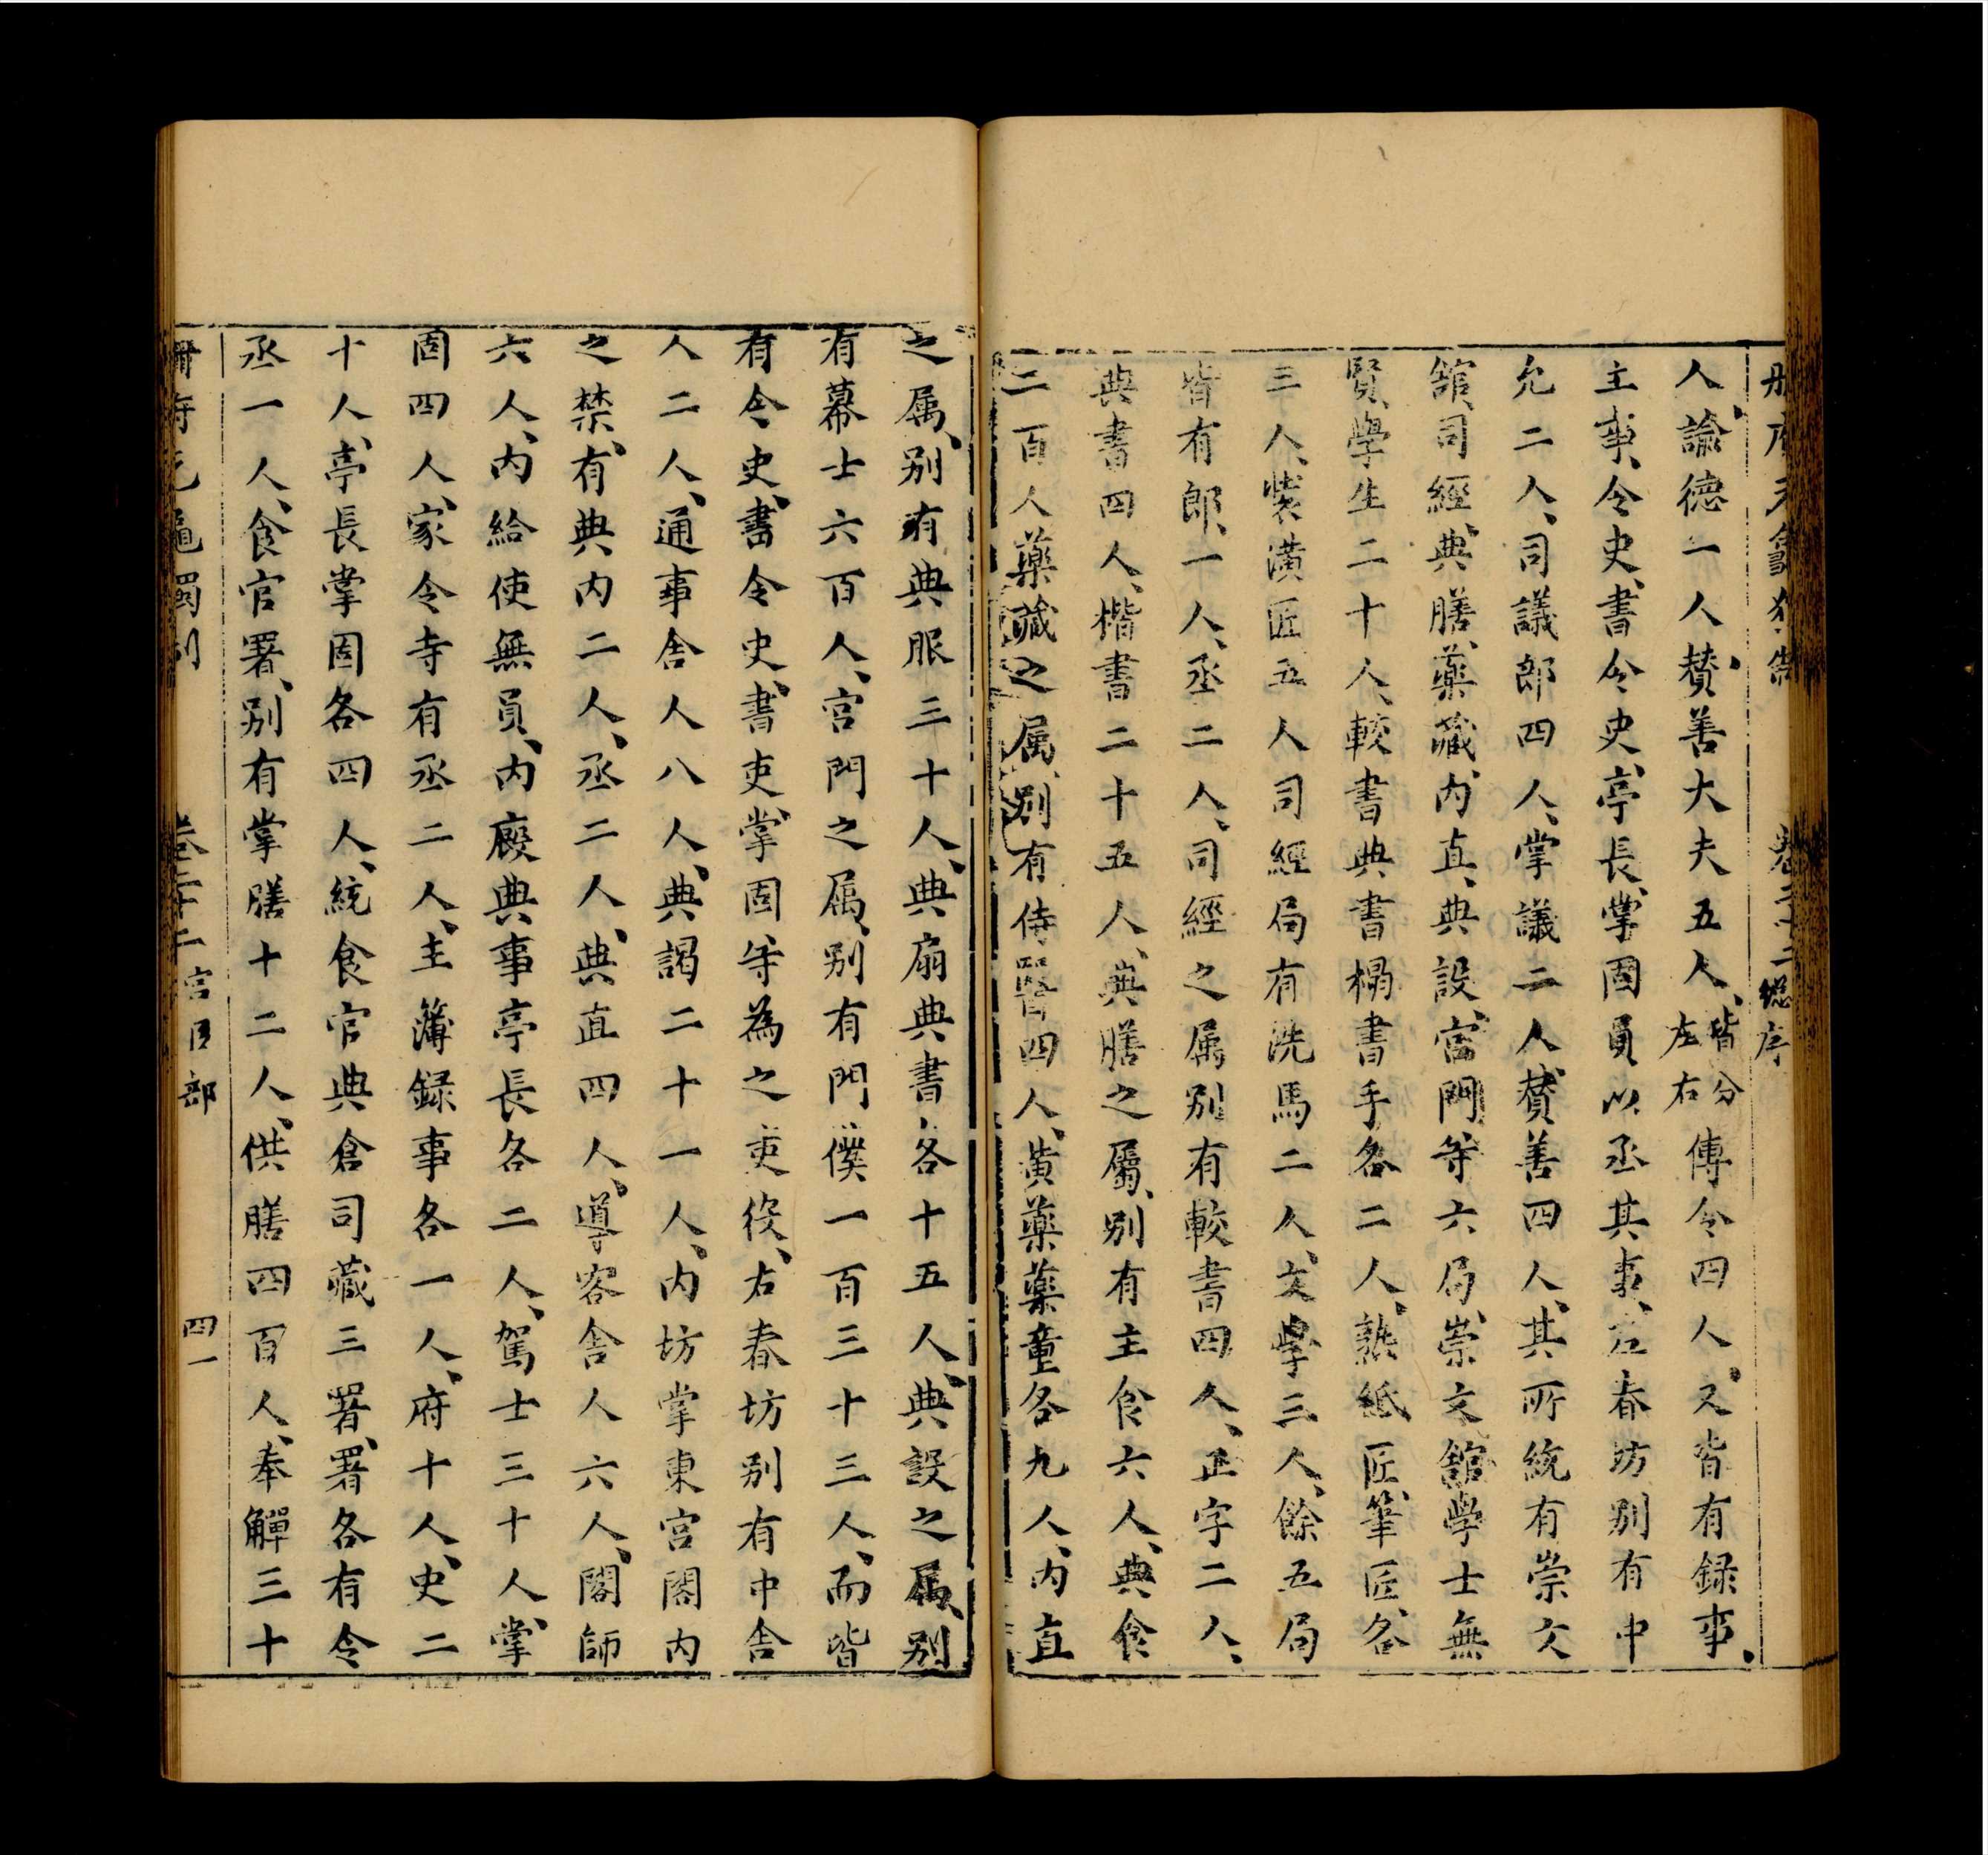 卷二十二總序
人、諭德一人、贊善大夫五人、皆分左右傳令四人、又皆有録事、
主事、令史、書令史、亭長、掌固員以丞其事、左春坊别有中
允二人、司議郎四人、掌議二人、賛善四人、其所統有崇文
舘、司經、典膳、藥藏、内直、典設、宫門等六局、崇文舘學士無
賢、學生二十人、較書典書榻書手各二人、熟紙匠、筆匠、各
三人、裝潢匠五人司經局有洗馬二人、文學三人、餘五局
皆有郎、一人、丞二人、司經之属别有較書四人、正字二人、
典書四人、楷書二十五人、典膳之屬、别有主食六人、典食
二百人藥藏之属、别有侍醫四人、黄藥藥童各九人、内直
之属、别有典服三十人、典扇典書各十五人、典設之属、别
有幕士六百人、宫門之属、别有門僕一百三十三人、而皆
有令史、書令史、書吏、掌固、等為之吏役、右春坊别有中舍
人二人、通事舍人八人、典謁二十一人、内坊掌東宫閤内
之禁、有典内二人、丞二人、典直四人、導客舍人六人、閤師
六人、内給使無員、内廄典事亭長各二人、駕士三十人掌
固四人、家令寺有丞二人、主簿録事各一人、府十人、史二
十人、亭長掌固各四人、統食官典倉司藏三署、署各有令
丞一人、食官署、别有掌膳十二人、供膳四百人、奉觶三十
卷二十二宫臣部 四一